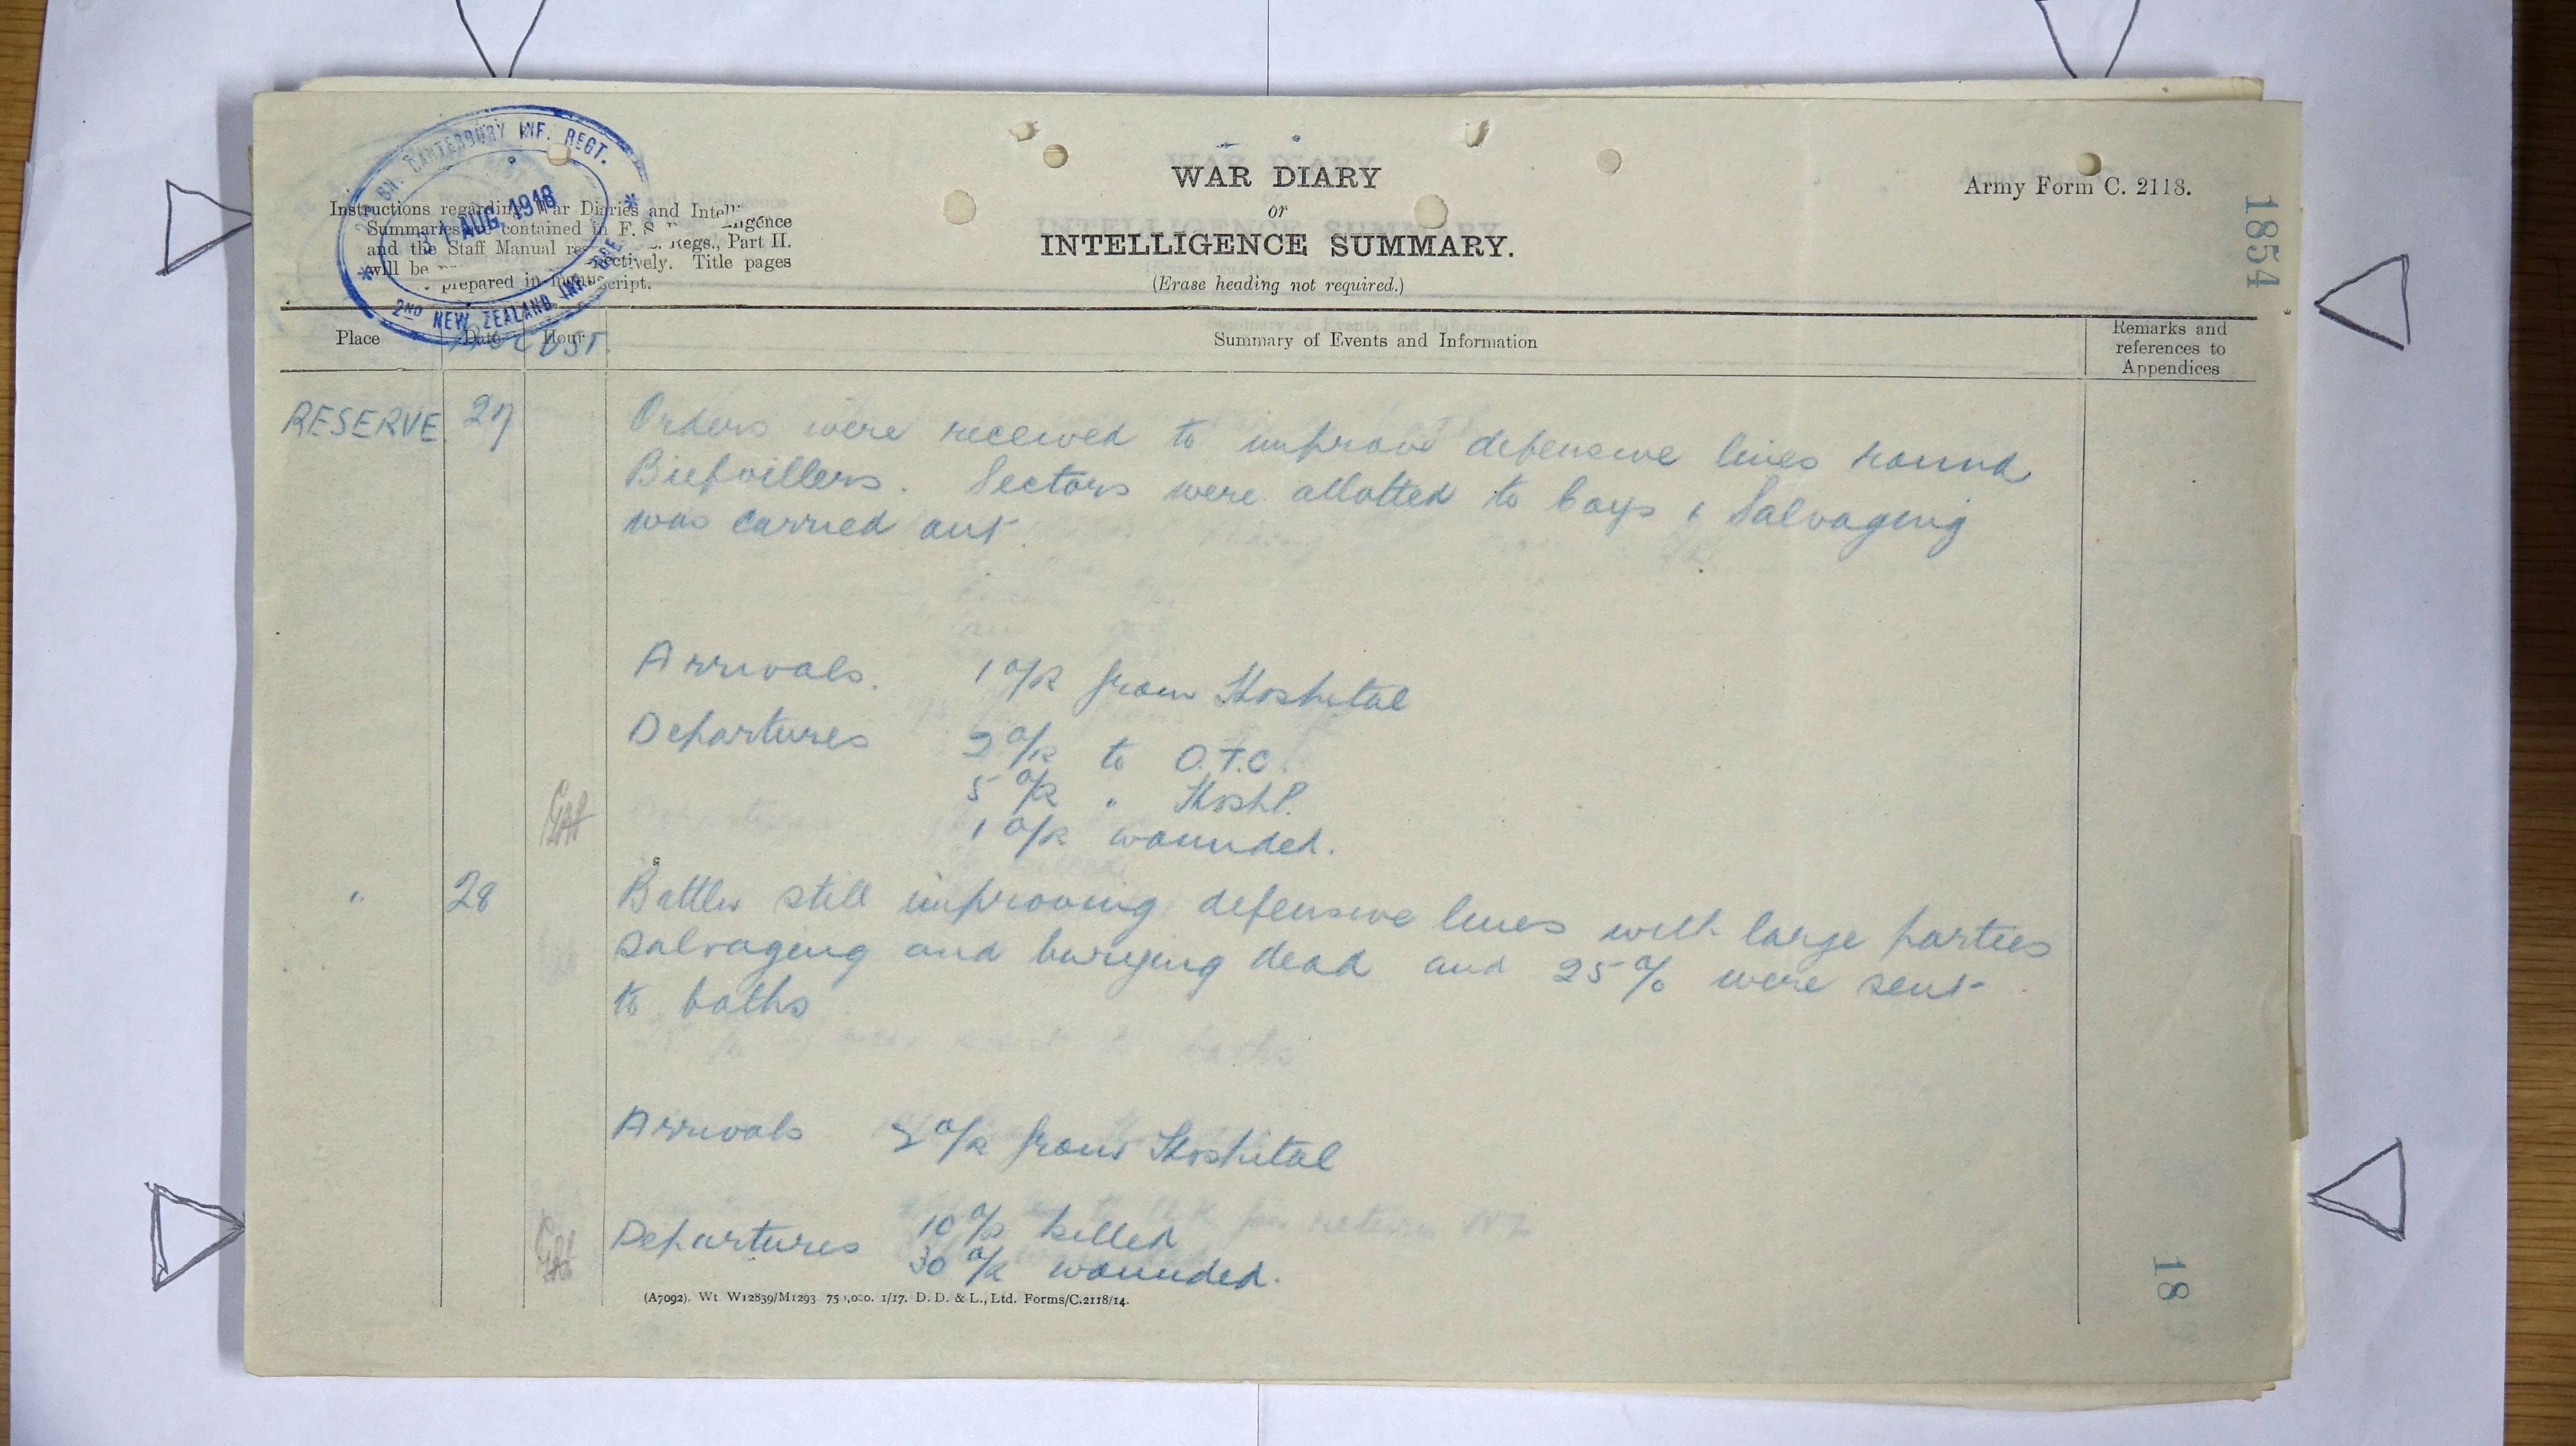 2ND BN. CANTERBURY INF. REGT.
31 AUG 1918
2ND NEW ZEALAND INF. BDE
WAR DIARY
or
INTELLIGENCE SUMMARY.
(Erase heading not required.)
Army Form C. 2118.
1854
Instructions regarding War Diaries and Intelligence
Summaries are contained in F. S. Regs., Part II.
and the Staff Manual respectively. Title pages
will be prepared in manuscript.
Place
Date
Hour
Summary of Events and Information
Remarks and
references to
Appendices
AUGUST.
RESERVE 27 Orders were received to improve defensive lines round
Biefvillers. Sectors were allotted to Coys & Salvaging
was carried out.
Arrivals. 1 O/R from Hospital
Departures 2 O/R to O.T.C.
5 O/R " Hospl.
1 O/R wounded.
" 28 Battln still improving defensive lines with large parties
salvaging and burying dead and 25% were sent
to baths
Arrivals 2 O/R from Hospital
Departures 10 O/R killed
30 O/R wounded.
(A7092). Wt. W12839/M1293 750,000. 1/17. D. D. & L., Ltd. Forms/C.2118/14.
18